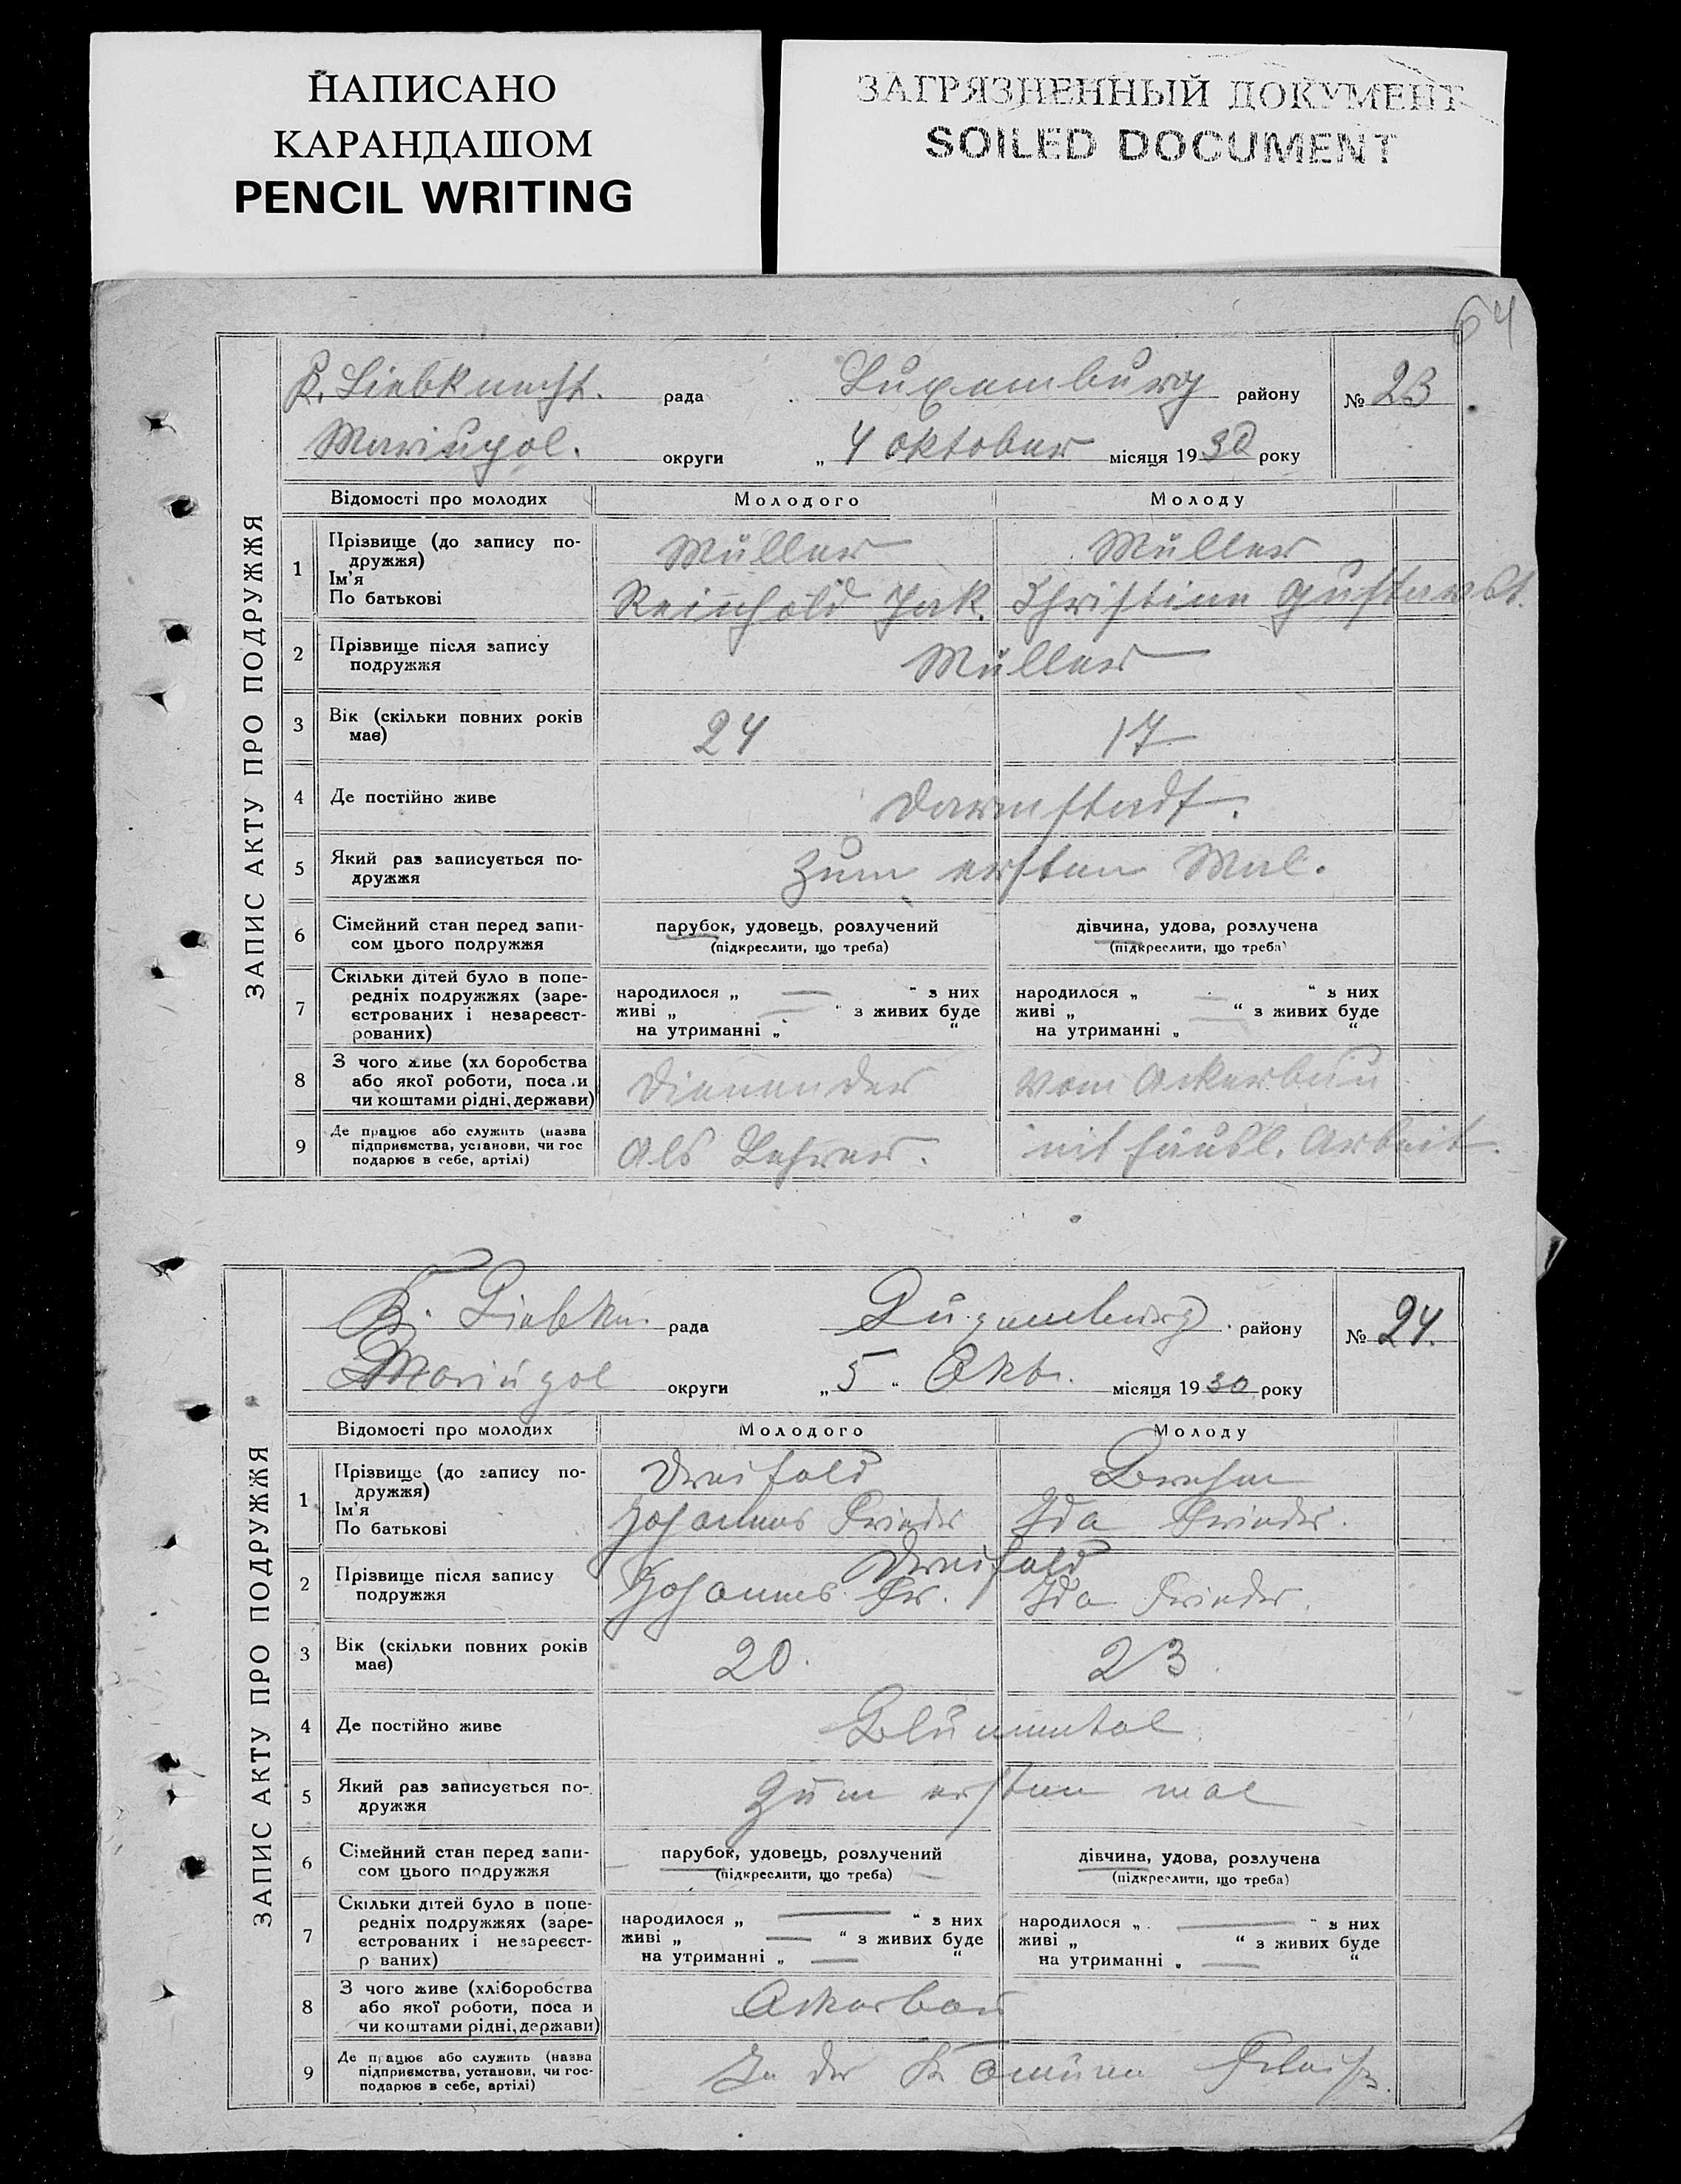 НАПИСАНО
КАРАНДАШОМ
PENCIL WRITING
ЗАГРЯЗНЕННЫЙ ДОКУМЕНТ
SOILED DOCUMENT
64
ЗАПИС АКТУ ПРО ПОДРУЖЖЯ
K. Liebknecht. рада Luxemburg району № 23
Mariupol. округи „ 4 oktober місяця 1930 року
Відомості про молодих Молодого Молоду
1 Прізвище (до запису по-
дружжя) Müller Müller
Ім'я
По батькові Reinhold Jak. Christine Gustavst.
2 Прізвище після запису
подружжя Müller
3 Вік (скільки повних років
має) 24 17
4 Де постійно живе Darmstadt.
5 Який раз записується по-
дружжя Zum ersten Mal.
6 Сімейний стан перед запи-
сом цього подружжя парубок, удовець, розлучений дівчина, удова, розлучена
(підкреслити, що треба) (підкреслити, що треба)
7 Скільки дітей було в попе-
редніх подружжях (заре-
єстрованих і незареєст-
рованих) народилося „ — “ з них народилося „ — “ з них
живі „ — “ з живих буде живі „ — “ з живих буде
на утриманні „ “ на утриманні „ “
8 З чого живе (хл боробства
або якої роботи, поса и
чи коштами рідні, держави) Dienender Vom Ackerbau
9 Де працює або служить (назва
підприємства, установи, чи гос
подарює в себе, артілі) Als Lehrer. mit häusl. Arbeit.
ЗАПИС АКТУ ПРО ПОДРУЖЖЯ
K. Liebkn. рада Luxemburg району № 24.
Mariupol округи „ 5 “ Oktr. місяця 1930 року
Відомості про молодих Молодого Молоду
1 Прізвище (до запису по-
дружжя) Dreifeld Brehm
Ім'я
По батькові Johannes Frieder Ida Frieder.
2 Прізвище після запису Dreifeld
подружжя Johannes Fr. Ida Frieder.
3 Вік (скільки повних років
має) 20. 23.
4 Де постійно живе Blumental
5 Який раз записується по-
дружжя Zum ersten mal
6 Сімейний стан перед запи-
сом цього подружжя парубок, удовець, розлучений дівчина, удова, розлучена
(підкреслити, що треба) (підкреслити, що треба)
7 Скільки дітей було в попе-
редніх подружжях (заре-
єстрованих і незареєст-
р ваних) народилося „ — “ з них народилося „ — “ з них
живі „ — “ з живих буде живі „ “ з живих буде
на утриманні „ — “ на утриманні „ — “
8 З чого живе (хліборобства
або якої роботи, поса и
чи коштами рідні, держави) Ackerbau
9 Де працює або служить (назва
підприємства, установи, чи гос-
подарює в себе, артілі) In der Komune